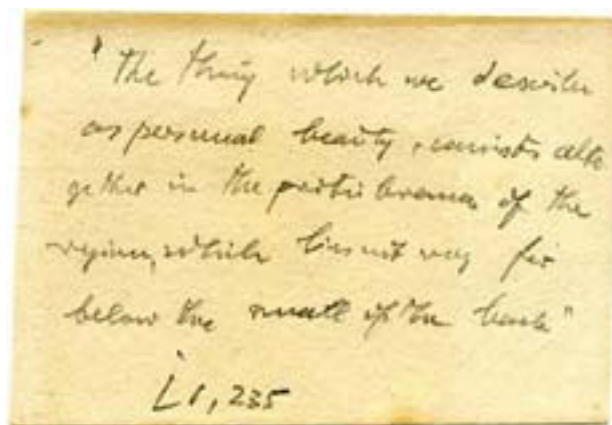 "The thing which we describe
as personal beauty, consists alto
gether in the protuberance of the
region, which lies not very far
below the small of the back"
235